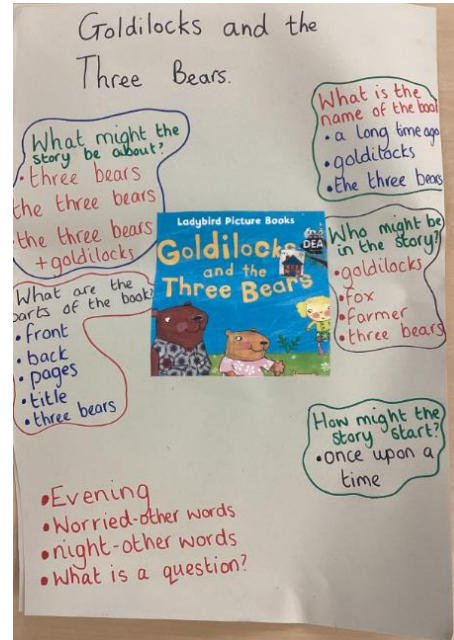 Goldilocks and the
Three Bears.
What might the
story be about?
• three bears
the three bears
• the three bears
+ goldilocks
What are the
parts of the book?
• front
• back
• pages
• title
• three bears
Ladybird Picture Books
Goldilocks
and the
Three Bears
DEA
What is the
name of the book
• a long time ago
• goldilocks
• the three bears
Who might be
in the story?
• goldilocks
• fox
• farmer
• three bears
How might the
story start?
• once upon a
time
• Evening
• Worried-other words
• night-other words
• What is a question?